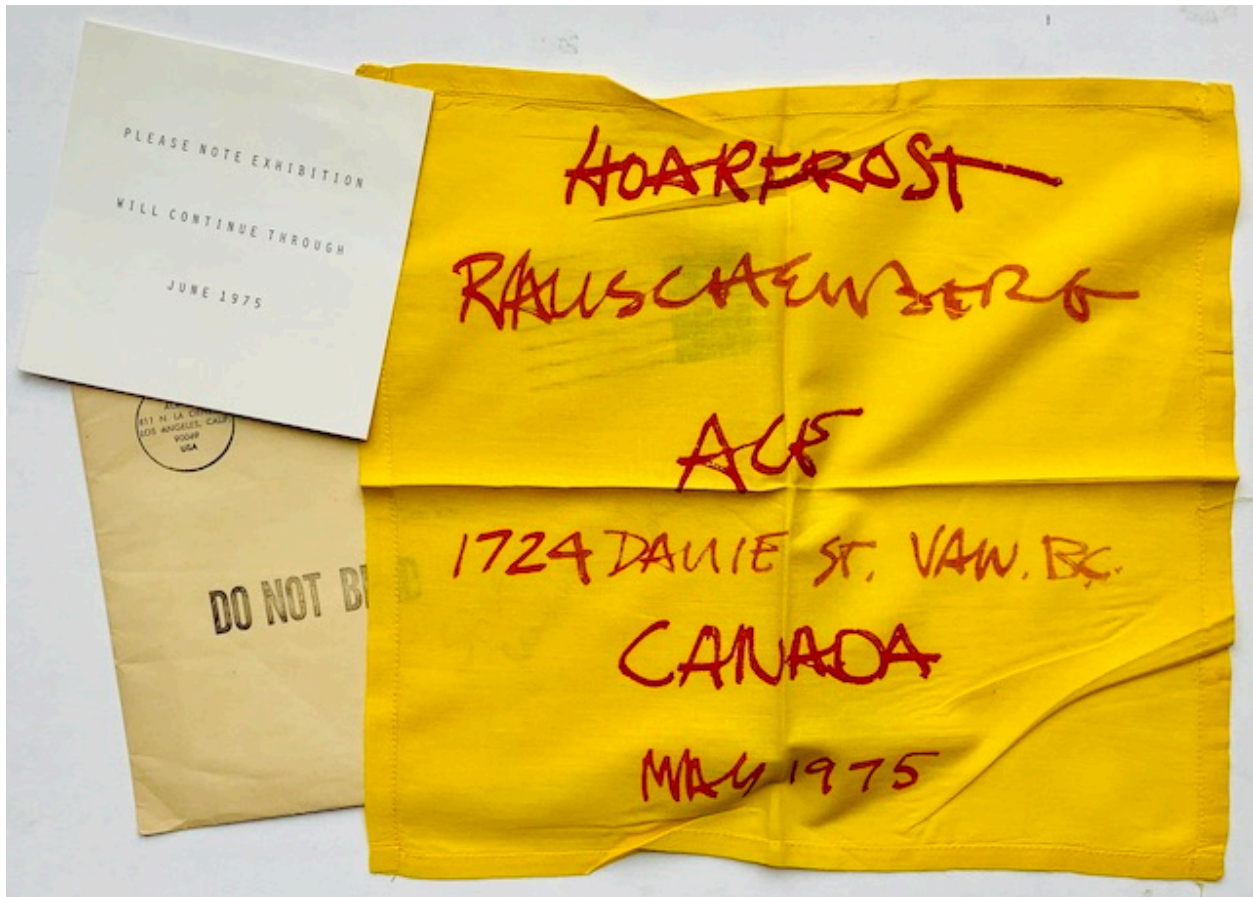 PLEASE NOTE EXHIBITION
WILL CONTINUE THROUGH
JUNE 1975
811 N. LA
LOS ANGELES, CALIF.
90069
USA
DO NOT
HOARFROST
RAUSCHENBERG
ACE
1724 DAVIE ST. VAN. BC.
CANADA
MAY 1975